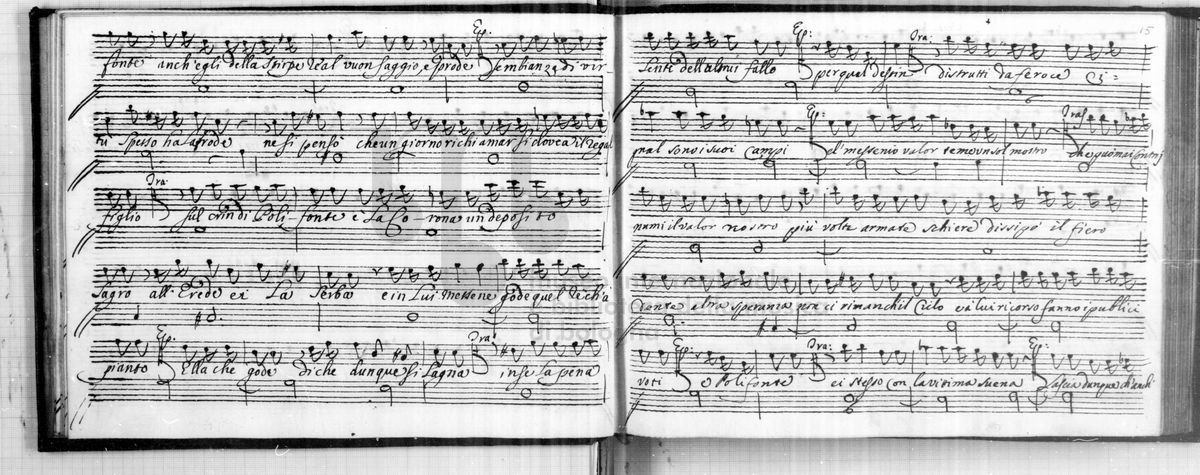 Ep:
fonte anch'egli della stirpe real vuon saggio, e prode sembianza di vir-
tù spesso ha la frode ne si pensò che un giorno richiamar si dovea il Real
Ora:
figlio sul crin di Poli-fonte e la Co-rona un deposito
sagro all'Erede ei la serba e in lui Messene gode quel ch'a
Ep: Ora:
pianto Ella che gode di che dunque si lagna in se la pena
15
Ep: Ora:
sente dell'altrui fallo per qual destin distrutti da feroce Ci=
Ep: Ora:
gnal sono i suoi Campi el messenio valor teme un sol mostro che può mai contro i
numi il valor nostro più volte armate schiere dissipò il fiero
dente altra speranza ci rimanch'il Cielo e a lui ricorso fanno i publici
Ep: Ora: Ep:
voti e Polifonte ei stesso con la vitima suena lascia dunque